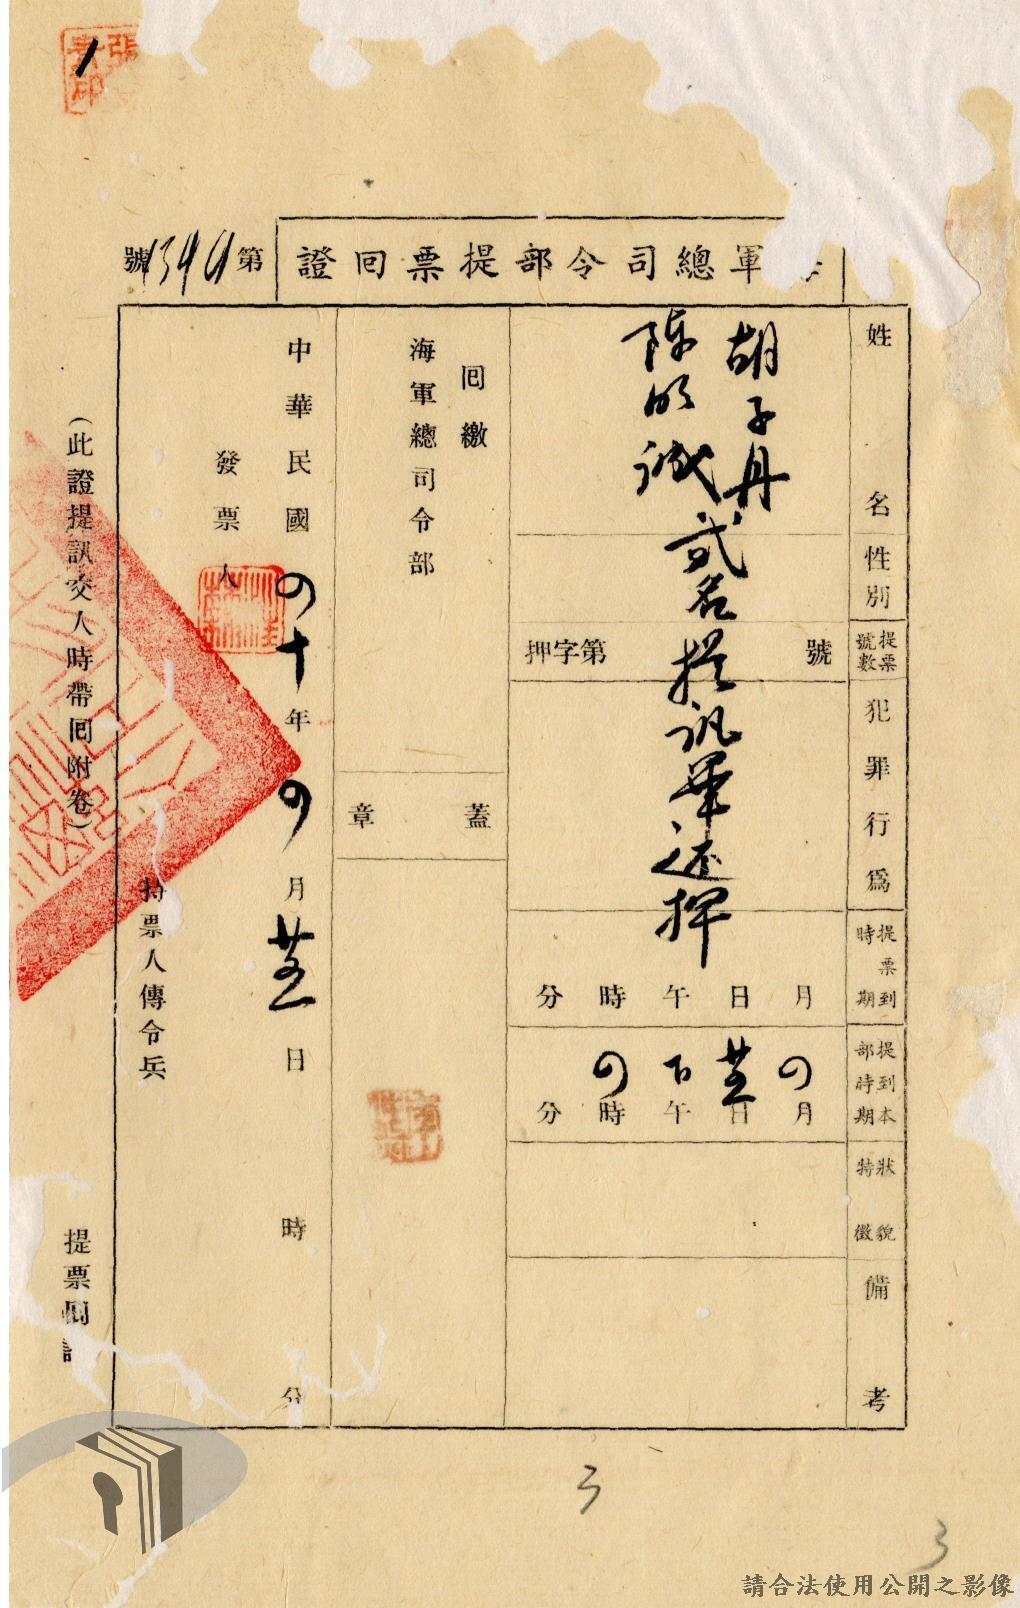 軍總司令部提票回證
第1394號
姓名
性別
提票號數
犯罪行為
提票到時期
提到本部時期
狀貌特徵
備考
胡子丹
陳明誠
貳名提訊畢還押
押字第 號
月 日 午 時 分
四月廿五日下午四時 分
回繳
海軍總司令部
蓋章
中華民國四十年四月廿五日 時 分
發票人
持票人傳令兵
(此證提訊交人時帶回附卷)
提票回
3
3
請合法使用公開之影像